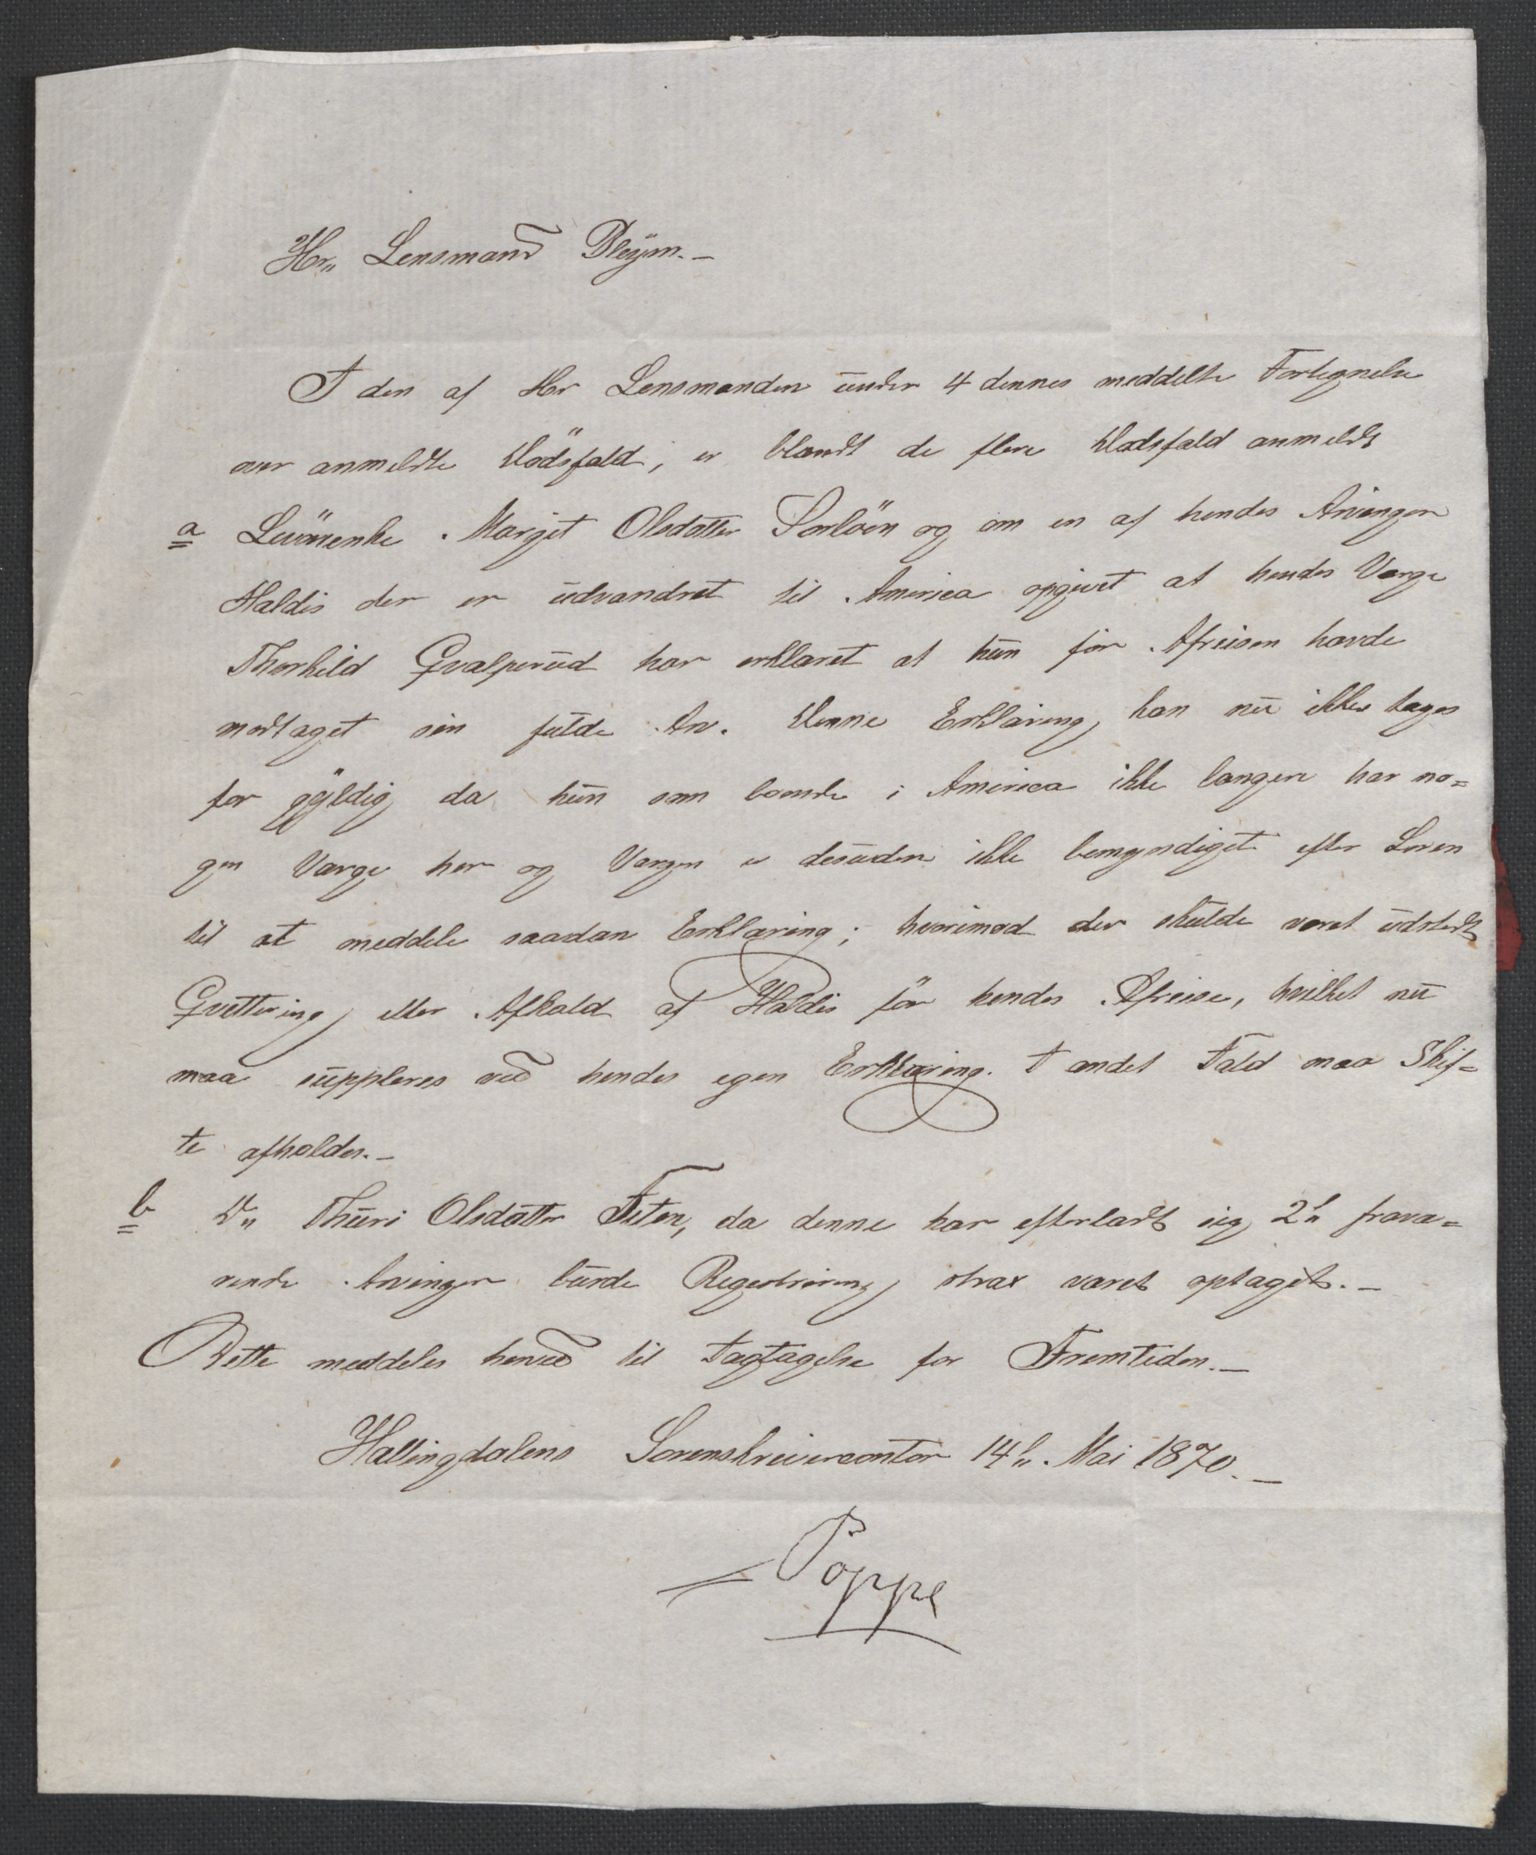 Hr. Lensmand Pleÿm.-
I den af Hr Lensmanden under 4 dennes meddelte Fortegnelse
over anmeldte Dødsfald, er blandt de flere Dødsfald anmeldt
a Leiv Enke Margit Olsdatter og om en af hendes Arvinger
Haldis der er udvandret til America opgivet at hendes Værge
Thorkild Qvalperud har erklæret at hun før Afreisen havde
modtaget sin fulde Arv. Denne Erklæring kan nu ikke tages
for gyldig da hun som boende i America ikke længere har no=
gen Værge her og Værgen er desuden ikke bemyndiget efter Loven
til at meddele saadan Erklæring; hvorimod der skulde været udstedt
Qvittering eller Afkald af Haldis før hendes Afreise, hvilket nu
maa suppleres ved hendes egen Erklæring. I andet Fald maa Skif=
te afholdes.-
b Do Thuri Olsdatter da denne har efterladt sig 2de fravæ=
rende Arvinger burde Registrering strax været optaget.-
Dette meddeles herved til Iagttagelse for Fremtiden.-
Hallingdalens Sorenskrivercontor 14de Mai 1870.-
Poppe